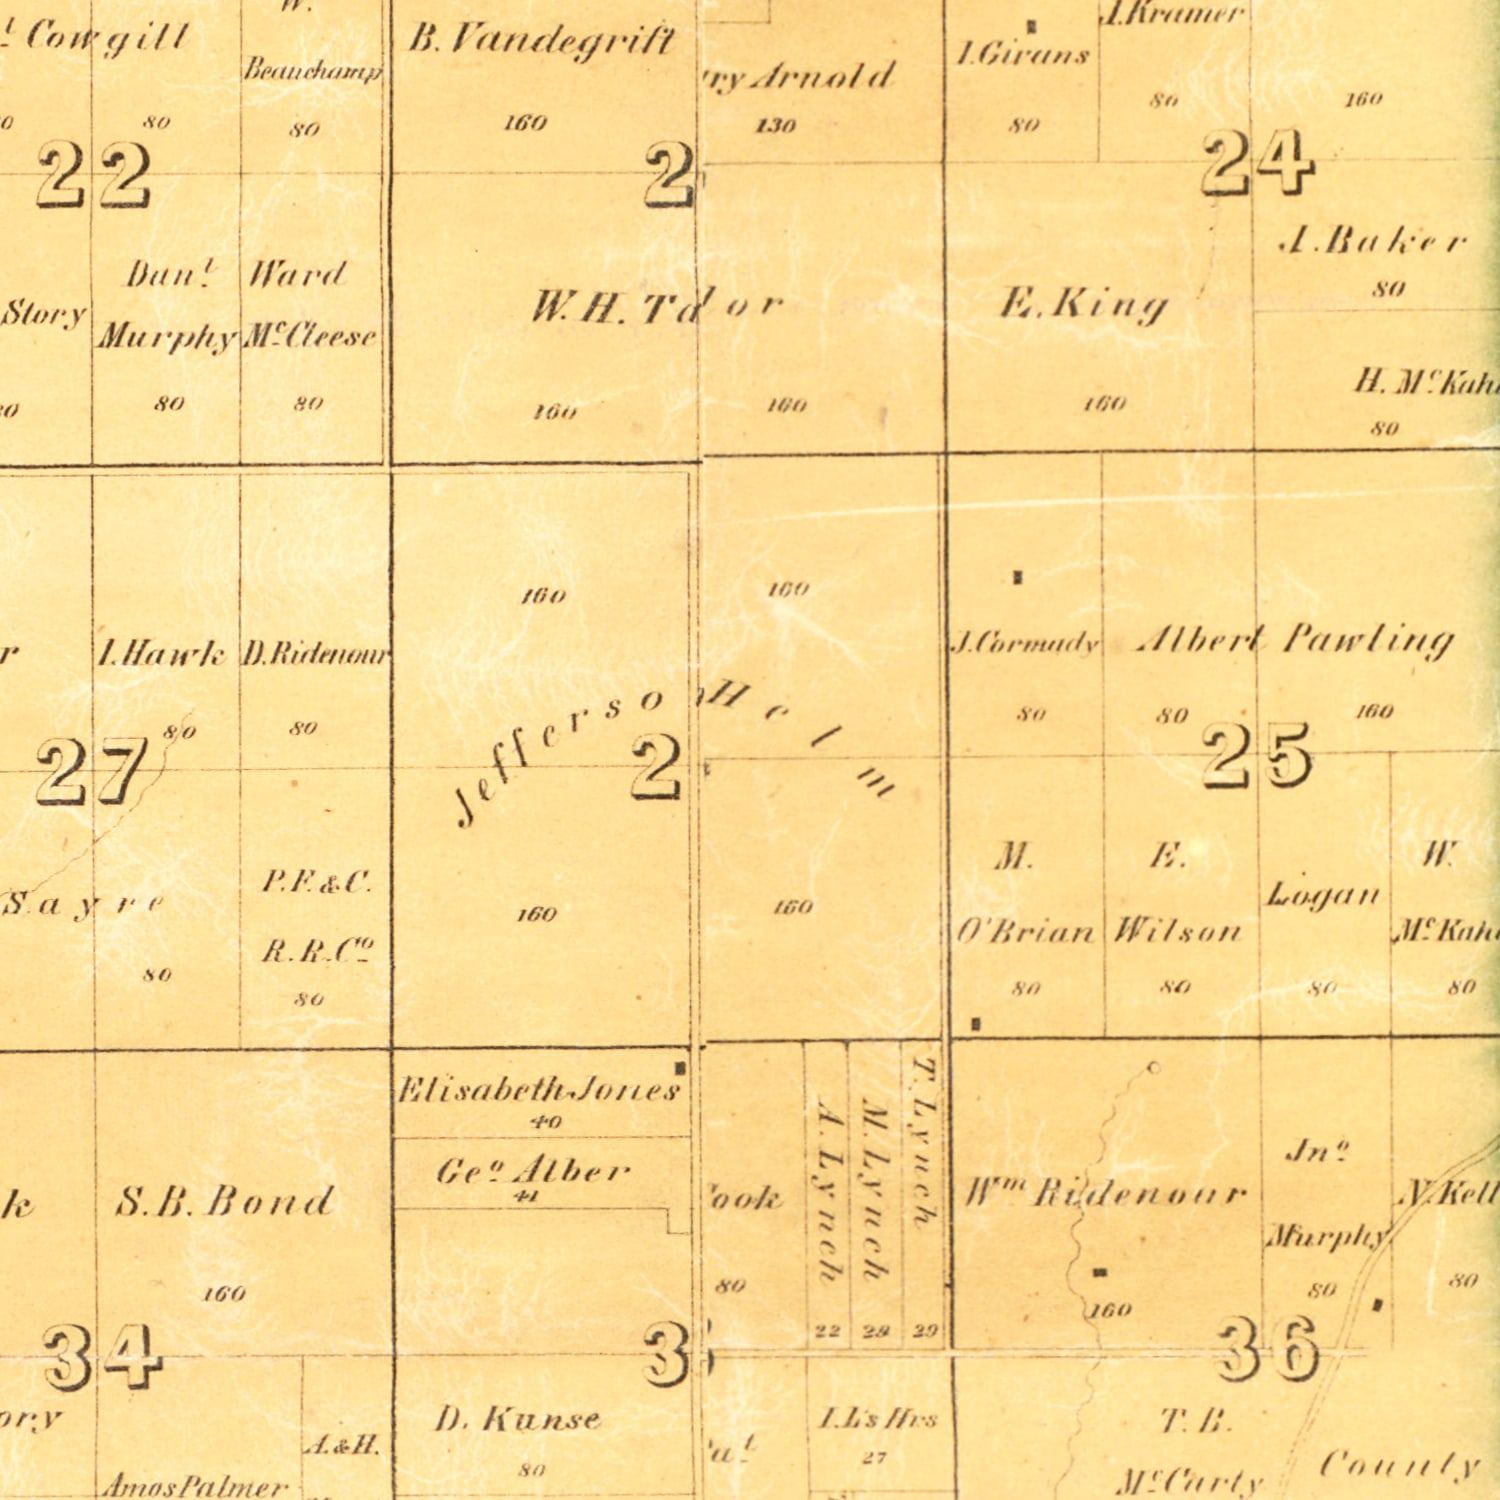 W.
Cowgill
Beauchamp
80
80
B. Vandegrift
160
Arnold
130
I. Givans
80
J. Kramer
80
160
22
2
24
Story
Danl.
Murphy
80
Ward
McCleese
80
W. H. T d or
160
160
E. King
160
J. Baker
80
H. McKah
80
I. Hawk
80
D. Ridenour
80
160
160
Jefferso Helm
J. Cormady
80
Albert Pawling
80
160
27
2
25
Sayre
80
P. F. & C.
R. R. Co.
80
160
160
M.
O'Brian
80
E.
Wilson
80
Logan
80
W.
McKah
80
k
S. B. Bond
160
Elisabeth Jones
40
Geo. Alber
41
ook
80
A. Lynch
22
M. Lynch
28
T. Lynch
29
Wm Ridenour
160
Jno.
Murphy
80
N. Kell
80
34
3
36
ory
Amos Palmer
A. & H.
D. Kunse
80
I. L's Hrs
27
T. B.
McCarty
County